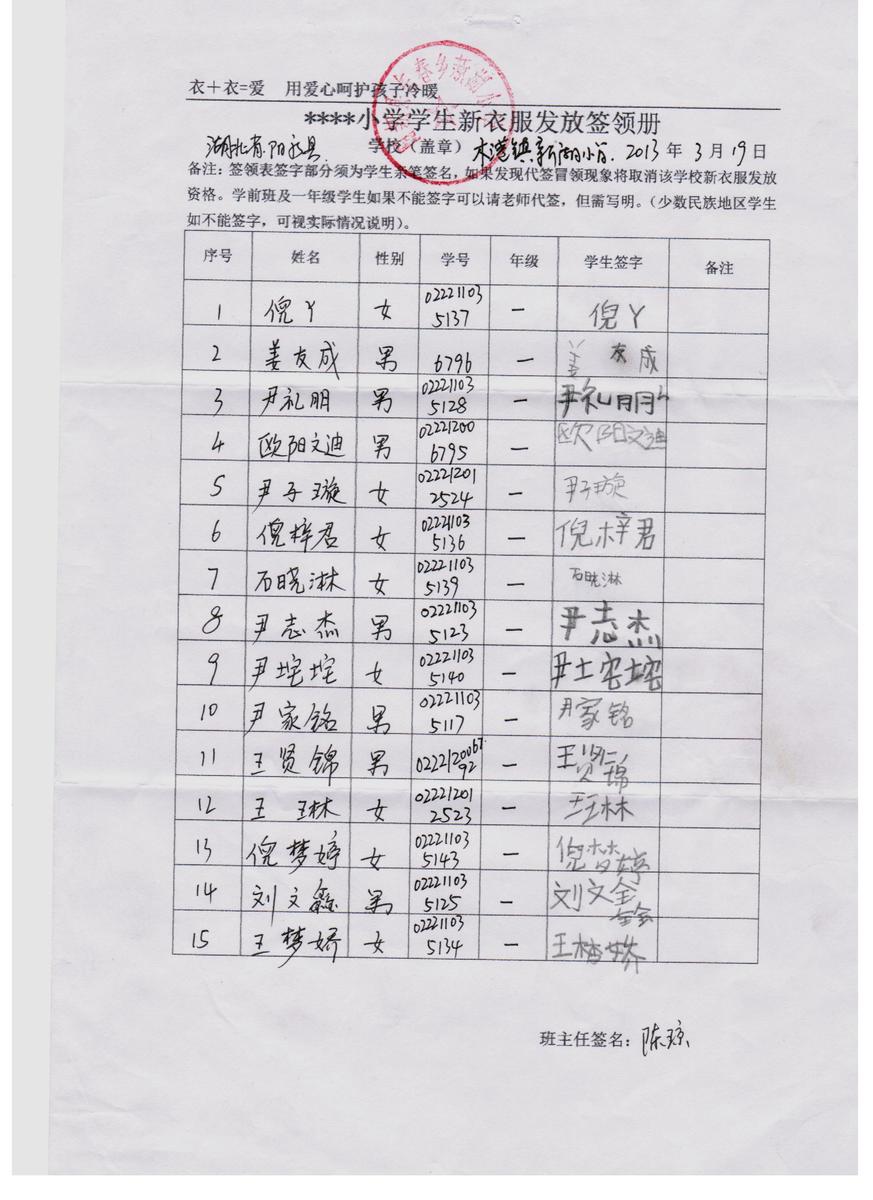 衣+衣=爱 用爱心呵护孩子冷暖
****小学学生新衣服发放签领册
湖北省阳新县 学校（盖章） 木港镇新湖小学. 2013年3月19日
备注：签领表签字部分须为学生亲笔签名，如果发现代签冒领现象将取消该学校新衣服发放
资格。学前班及一年级学生如果不能签字可以请老师代签，但需写明。（少数民族地区学生
如不能签字，可视实际情况说明）。
序号 姓名 性别 学号 年级 学生签字 备注
1 倪丫 女 02221103 5137 一 倪丫
2 姜友成 男 6796 一 姜友成
3 尹礼朋 男 02221103 5128 一 尹礼朋
4 欧阳文迪 男 02221200 6795 一 欧阳文迪
5 尹子璇 女 02221201 2524 一 尹子璇
6 倪梓君 女 02221103 5136 一 倪梓君
7 石晓淋 女 02221103 5139 一 石晓淋
8 尹志杰 男 02221103 5123 一 尹志杰
9 尹垞垞 女 02221103 5140 一 尹垞垞
10 尹家铭 男 02221103 5117 一 尹家铭
11 王贤锦 男 0222120067 92 一 王贤锦
12 王王林 女 02221201 2523 一 王王林
13 倪梦婷 女 02221103 5143 一 倪梦婷
14 刘文鑫 男 02221103 5125 一 刘文鑫
15 王梦娇 女 02221103 5134 一 王梦娇
班主任签名：陈琼